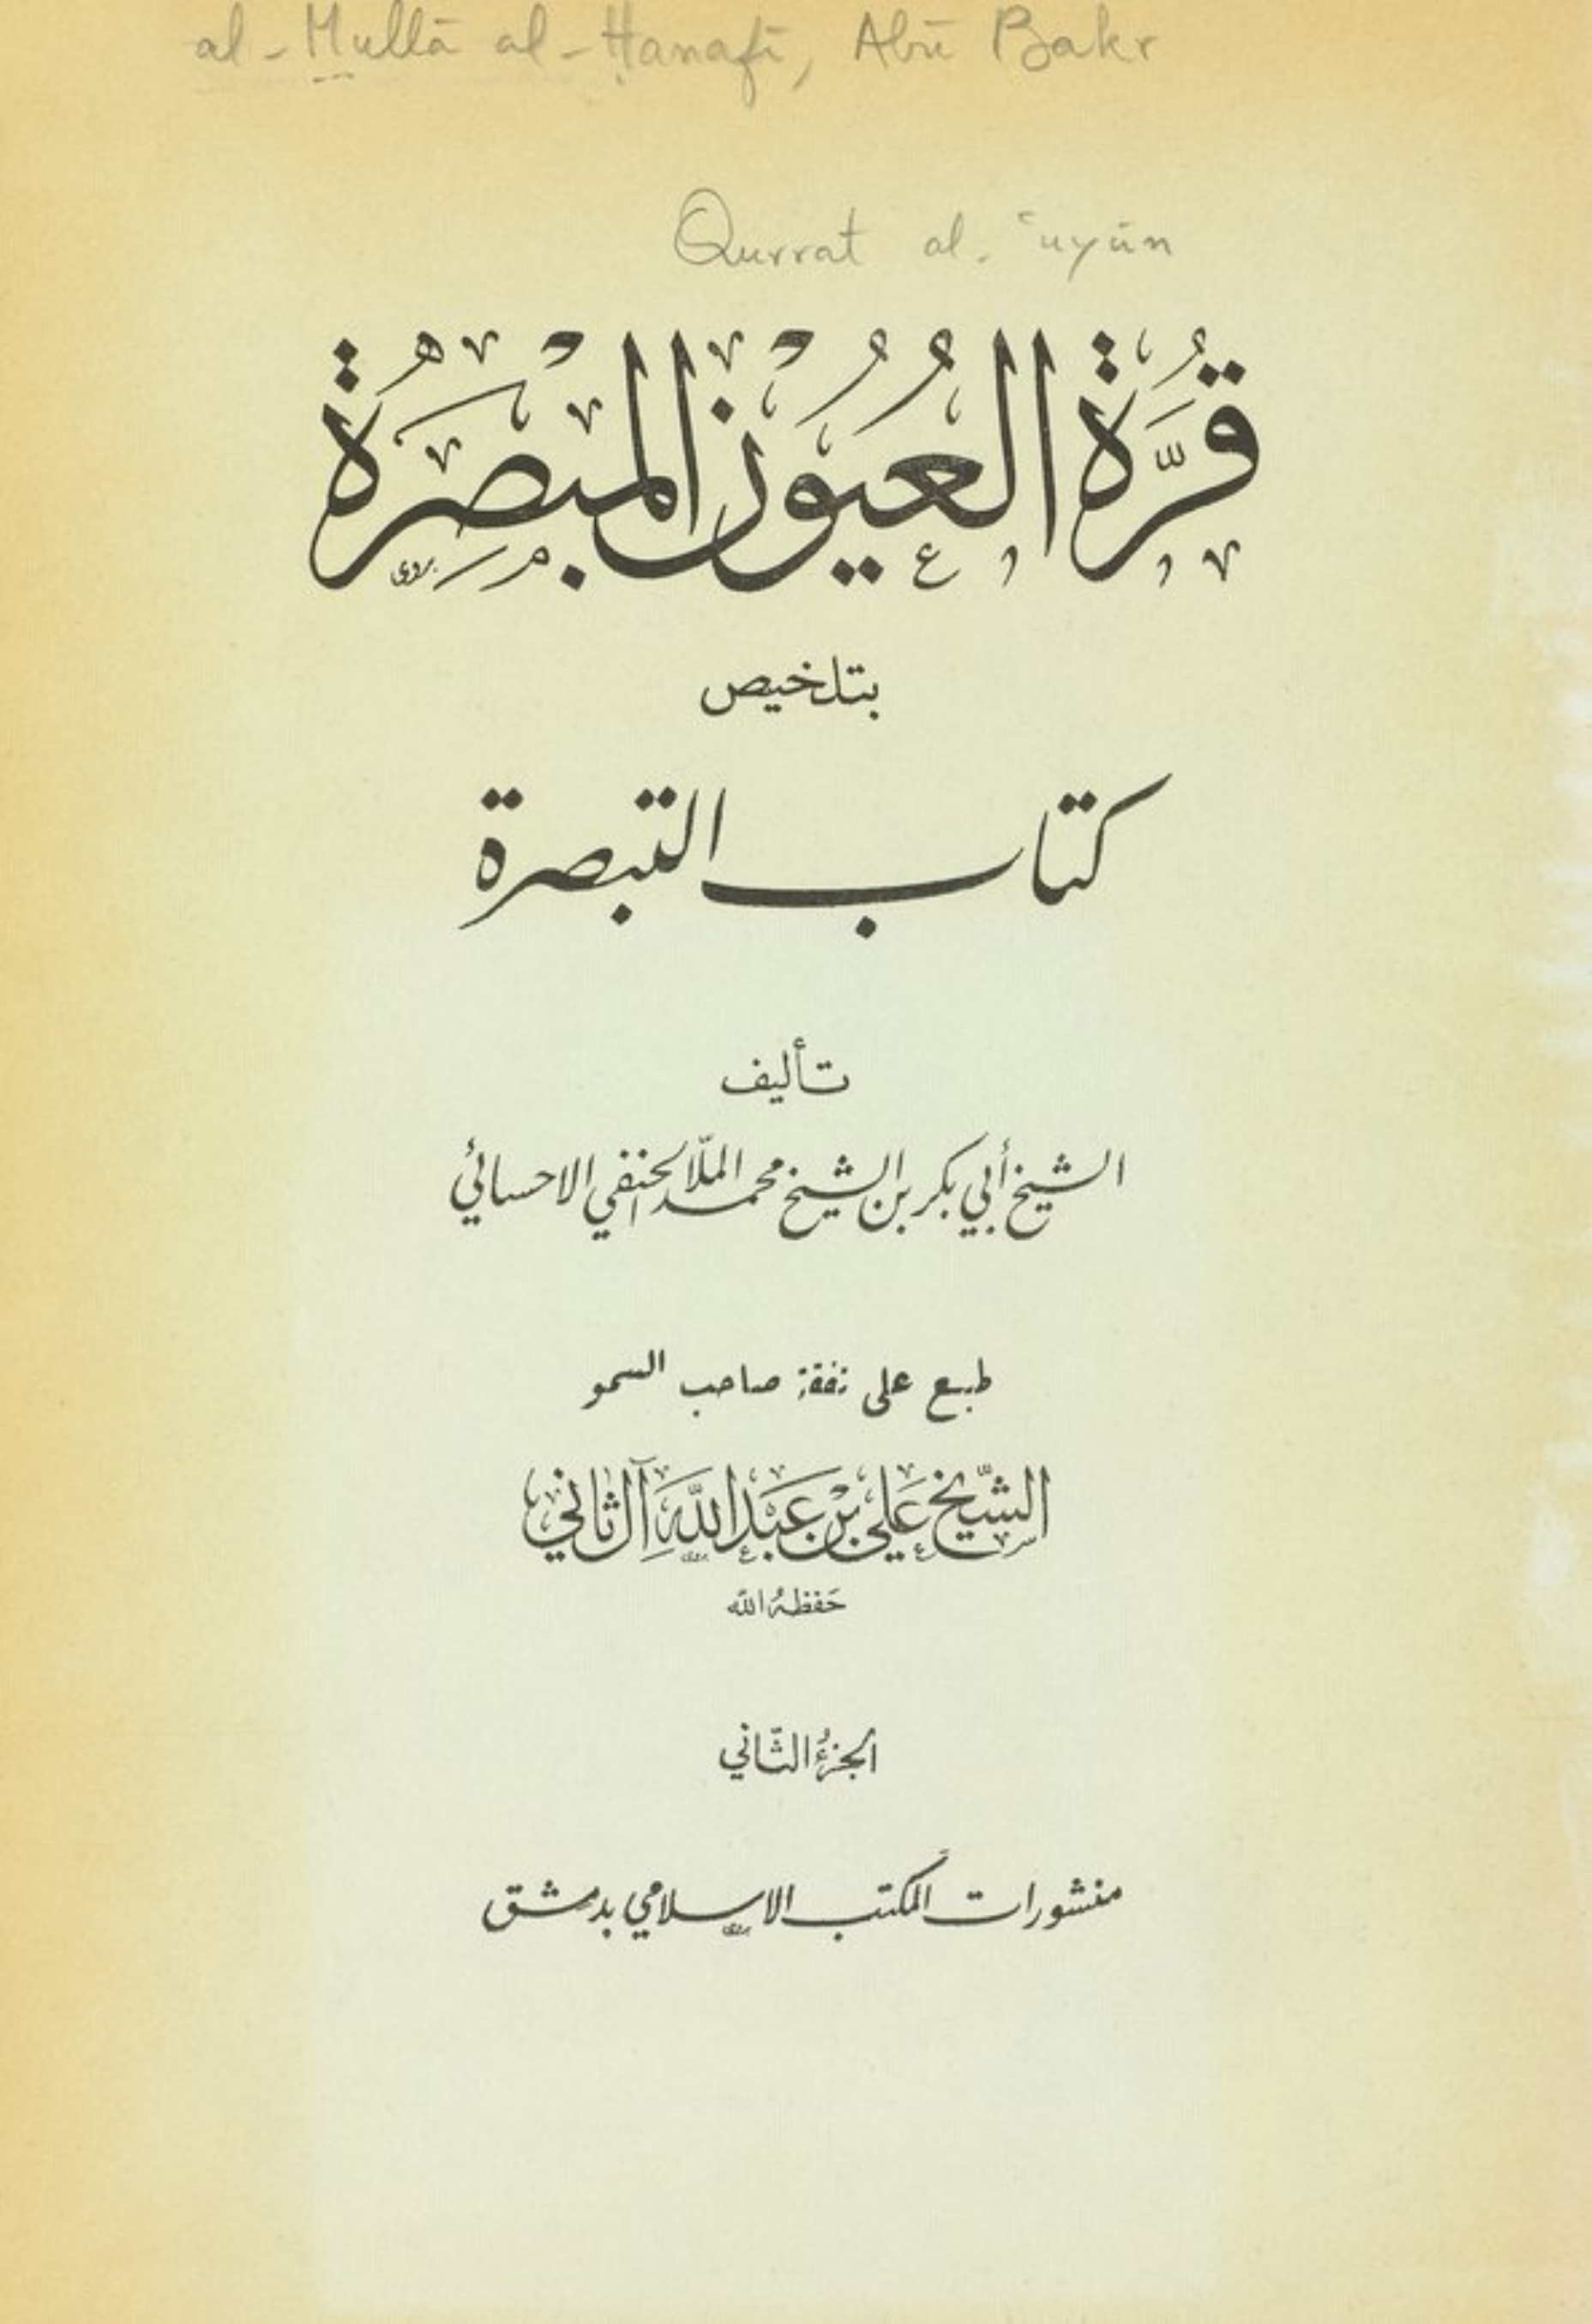 al-Mullā al-Ḥanafī, Abū Bakr
Qurrat al-ʿuyūn
قُرَّة العُيُون المُبْصِرَة
بتلخيص
كتاب التبصرة
تأليف
الشيخ أبي بكر بن الشيخ محمد الملّا الحنفي الاحسائي
طبع على نفقة صاحب السمو
الشّيخ عَلي بْن عَبد اللّه آل ثاني
حَفظهُ الله
الجزءُ الثّاني
منشورات المكتب الاسلامي بدمشق